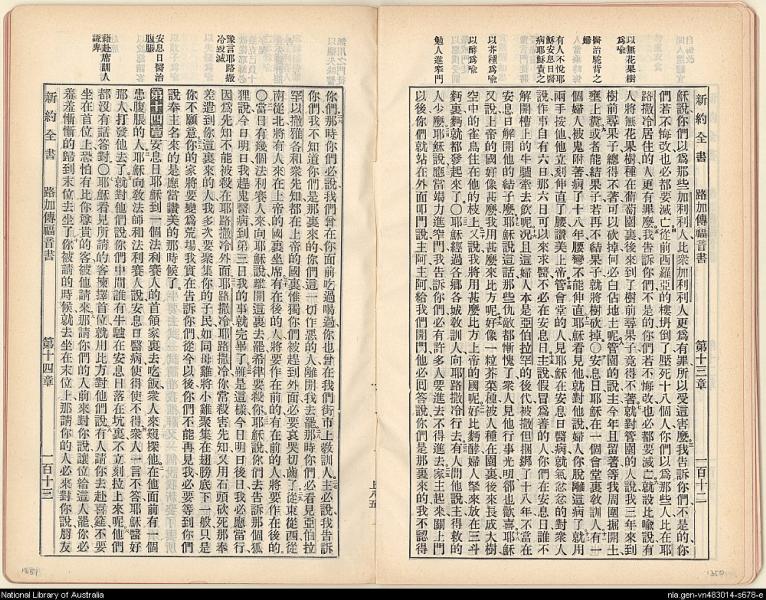 新約全書 路加傳福音書 第十三章 一百十二
以無花果樹爲喻
醫治駝背之婦
有人不悅耶穌安息日醫病耶穌責之
以芥種爲喻
以酵爲喻
勉人進窄門
穌說你們以爲那些加利利人比衆加利利人更爲有罪所以受這害麼我告訴你們不是的你
們若不悔改也必都要滅亡從前西羅亞的樓塌倒了壓死十八個人你們以爲那些人比在耶
路撒冷居住的人更有罪麼我告訴你們不是的你們若不悔改也必都要滅亡就設比喻說有
人將無花果樹種在葡萄園裏後來到了樹前尋果子竟得不著就對管園的人說我三年來到
樹前尋果子總得不著可以砍掉何必白佔地土呢管園的說主今年且留著等我周圍掘開土
壅上糞或者能結果子若再不結果子就將樹砍掉○安息日耶穌在一個會堂裏敎訓人有一
個婦人被鬼附著病了十八年腰彎不能伸直耶穌看見他就對他說婦人你脫離這病了就用
兩手按他他立刻伸直了腰讚美上帝管會堂的人見耶穌在安息日醫病就氣忿忿的對衆人
說作事自有六日那六日可以來求醫不必在安息日主說假冒爲善的人你們在安息日誰不
解開槽上的牛驢牽去飲呢況且這婦人本是亞伯拉罕的後代被撒但捆綁了十八年不當在
安息日解開他的結子麼耶穌說這話那些仇敵都慚愧了衆人見他行事光明都也歡喜耶穌
又說上帝的國好像甚麼我用甚麼來比方呢好像一粒芥菜種被人種在園裏後來長成大樹
空中的雀鳥住在他的枝上又說我將用甚麼比方上帝的國呢好比麪酵婦人拏來放在三斗
麪裏麪就都發起來了○耶穌經過各鄉各城敎訓人向耶路撒冷行去有人問他說主得救的
人少麼耶穌說應當竭力進窄門我告訴你們必有許多人要進去不得進去家主起來關上門
以後你們就站在外面叩門說主阿主阿給我們開門他必囘答說你們是那裏來的我不認得
豫言耶路撒冷毀滅
安息日醫治臌脹
藉赴席訓人謙卑
你們那時你們必說我們曾在你面前吃過喝過你也曾在我們街市上敎訓人主必說我告訴
你們我不知道你們是那裏來的你們這一切作惡的人離開我去罷那時你們必看見亞伯拉
罕以撒雅各和衆先知都在上帝的國裏惟獨你們被趕到外面必要哀哭切齒了從東從西從
南從北將有人來在上帝的國裏坐席有在後的人將要作在前的有在前的人將要作在後的
○當日有幾個法利賽人來向耶穌說離開這裏去罷希律要殺你耶穌說你們去告訴那個狐
狸說今日明日我趕鬼醫病到第三日我的事就完畢了雖是這樣今日明日後日我必應當行
因爲先知不能被殺在耶路撒冷外面耶路撒冷耶路撒冷你常殺害先知又用石頭砍死那奉
差遣到你這裏來的人我多次要聚集你的子民如同母雞將小雞聚集在翅膀底下一般只是
你不願意你的家將要變爲荒場我實在告訴你們從今以後你們不能再見我必要等到你們
說奉主名來的是應當讚美的那時候了
第十四章安息日耶穌到一個法利賽人的首領家裏去吃飯衆人來窺探他在他面前有一個
患臌脹的人耶穌向敎法師和法利賽人說安息日醫病使得使不得衆人一言不答耶穌醫好
那人打發他去了就對他們說你們中間誰有牛驢在安息日落在坑裏不立刻拉上來呢他們
都沒有話答對○耶穌看見所請的客揀擇首位就用比方對他們說有人請你去赴喜筵不要
坐在首位上恐怕有比你尊貴的客被他請來那請你們的人前來對你說讓位給這人罷你必
羞羞慚慚的歸到末位去坐了你被請的時候就去坐在末位上那請你的人必來對你說朋友
新約全書 路加傳福音書 第十四章 一百十三
National Library of Australia
nla.gen-vn483014-s678-e